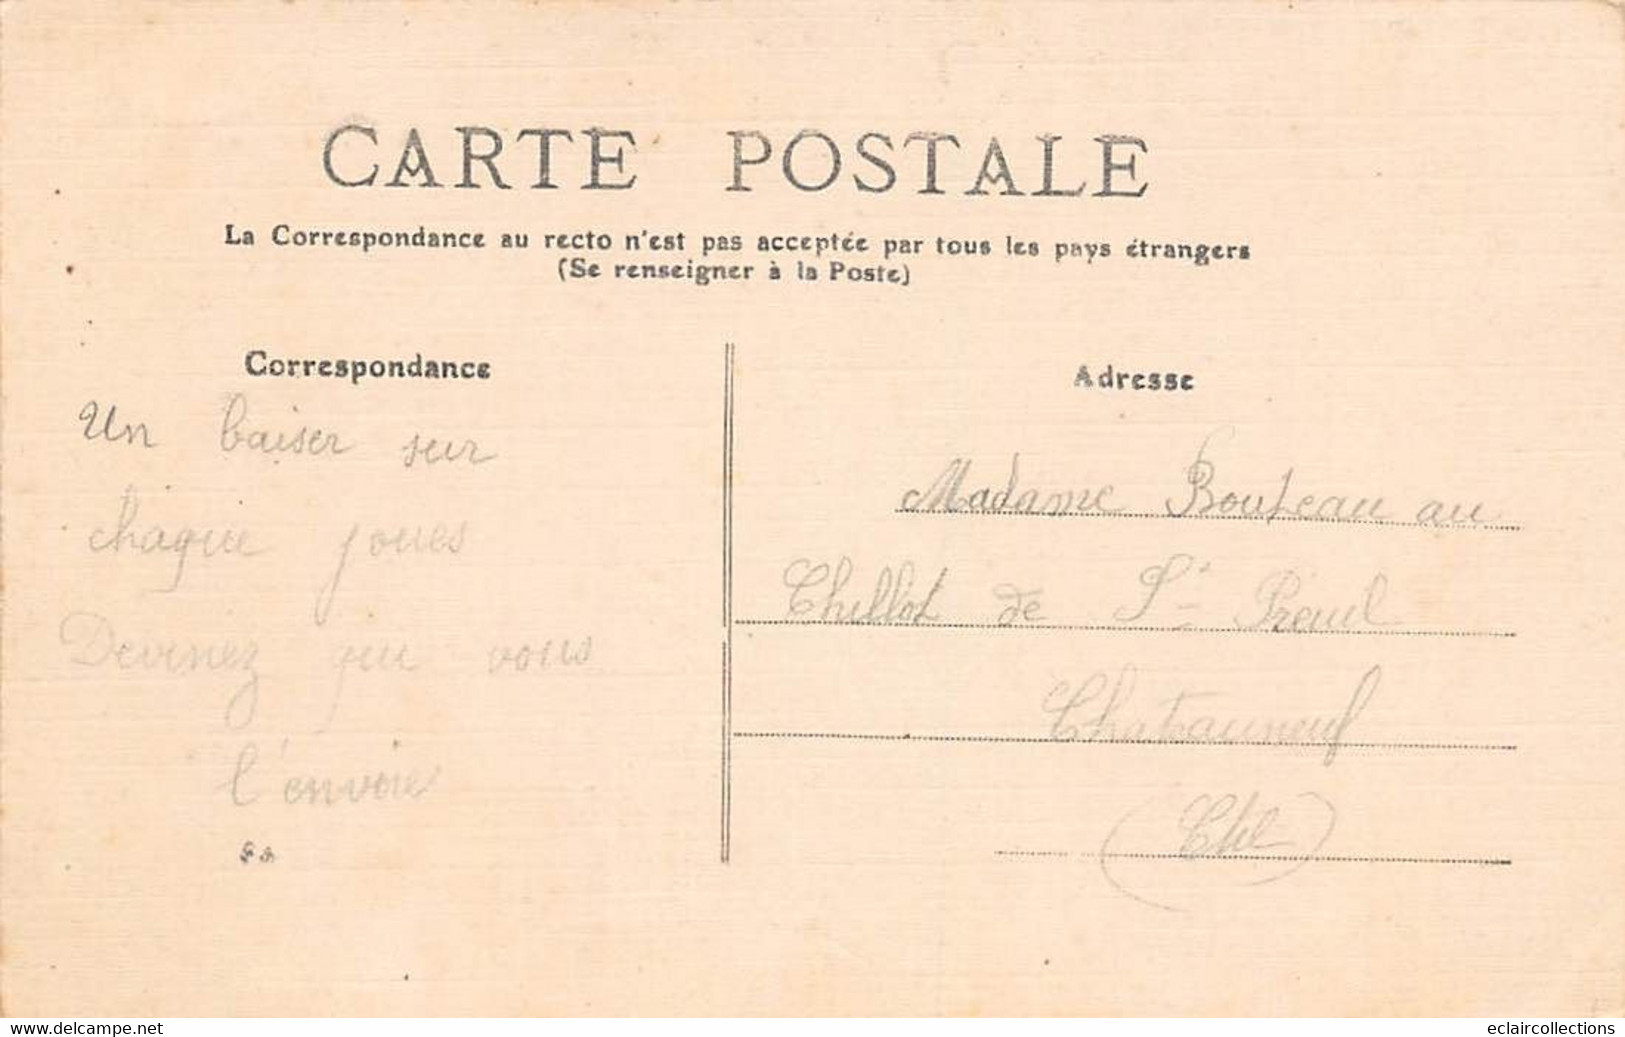 CARTE POSTALE
La Correspondance au recto n'est pas acceptée par tous les pays étrangers
(Se renseigner à la Poste)
Correspondance
Un baiser sur
chaque joues
Devinez qui vous
l'envoie
Adresse
Madame Bouteau au
Chillot de St Preuil
Chateauneuf
www.delcampe.net
eclaircollections